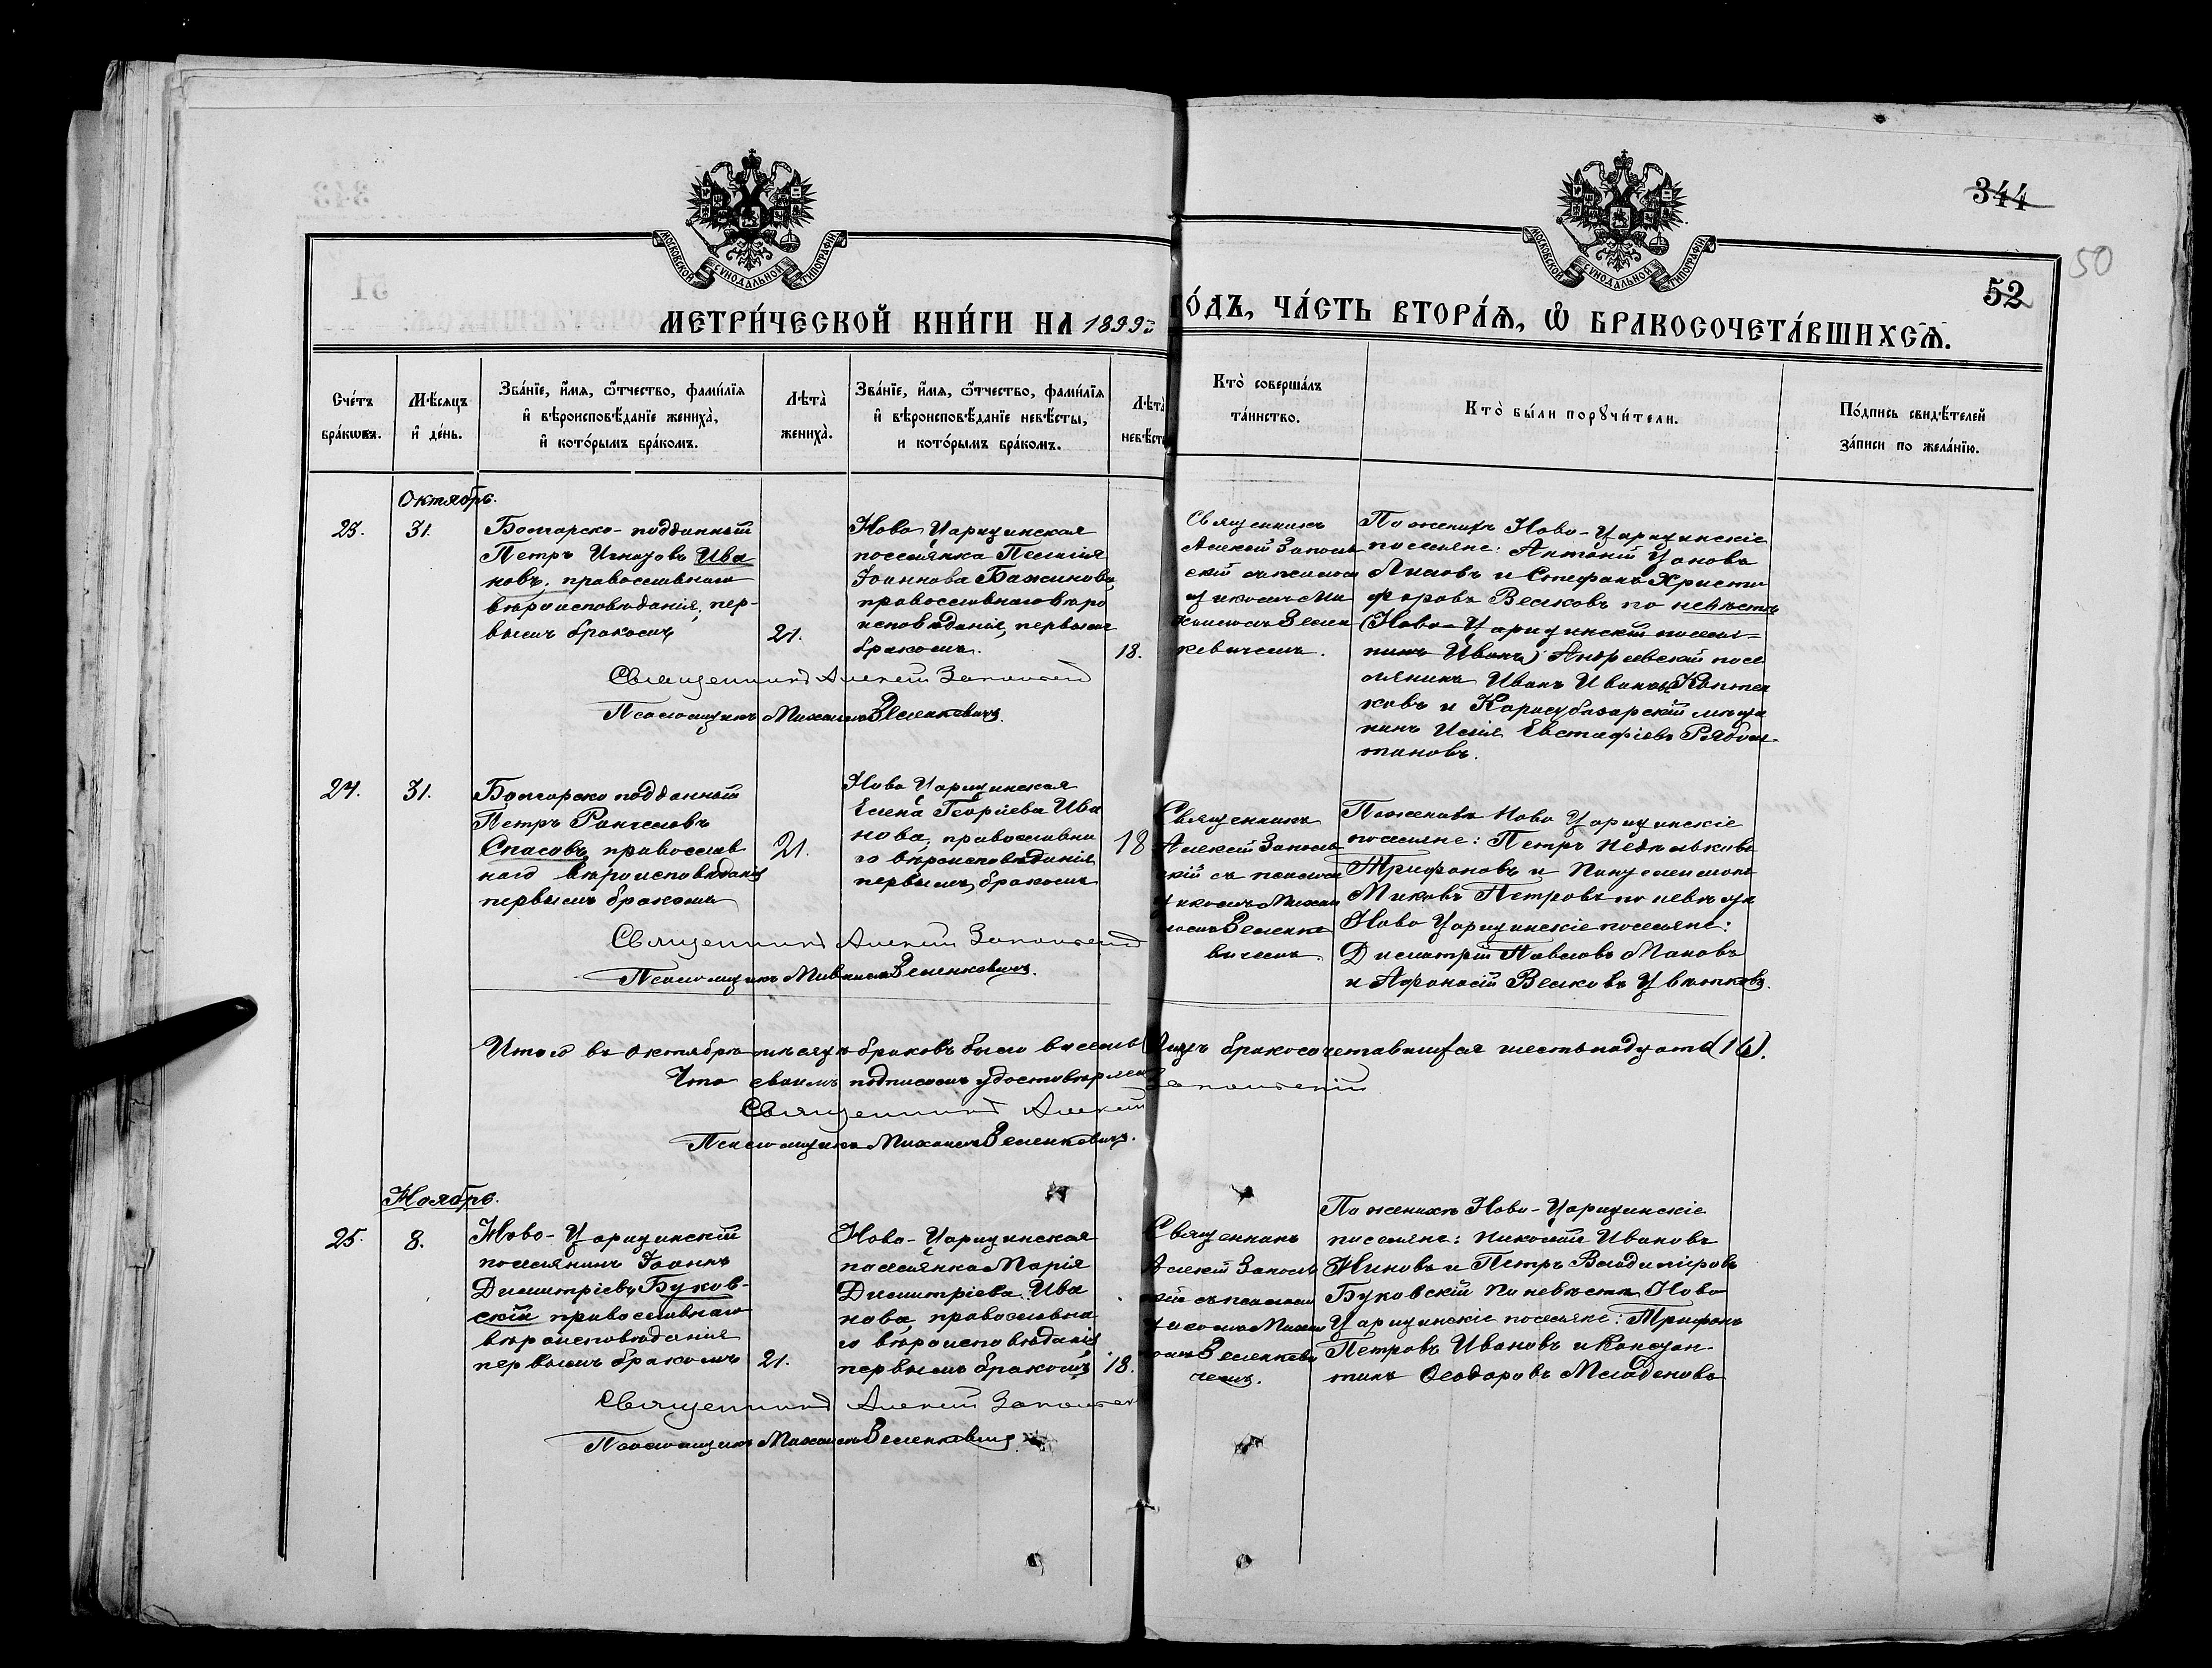 344
50
52
МОСКОВСКОЙ СѴНОДАЛЬНОЙ ТИПОГРАФІИ
МОСКОВСКОЙ СѴНОДАЛЬНОЙ ТИПОГРАФІИ
МЕТРИ́ЧЕСКОЙ КНИ́ГИ НА 1899й ГО́ДЪ, ЧА́СТЬ ВТОРА́Ѧ, Ѽ БРАКОСОЧЕТА́ВШИХСѦ.
Сче́тъ бра́кѡвъ.
Мѣ́сѧцъ и҆ де́нь.
Зва́нїе, и҆́мѧ, ѻ҆́тчество, фами́лїѧ
и҆ вѣроисповѣ́данїе жениха̀,
и҆ кото́рымъ бра́комъ.
Лѣта̀ жениха̀.
Зва́нїе, и҆́мѧ, ѻ҆́тчество, фами́лїѧ
и҆ вѣроисповѣ́данїе невѣ́сты,
и кото́рымъ бра́комъ.
Лѣта̀ невѣ́сты
Кто̀ соверша́лъ
та́инство.
Кто̀ бы́ли порꙋчи́тели.
По́дпись свидѣ́телей
за́писи по жела́нїю.
Октябрь.
23.
31.
Болгарско-подданный
Петръ Игнатовъ Ива
новъ, православнаго
вѣроисповѣданія, пер-
вымъ бракомъ
21.
Ново Царицинская
поселянка Пелагія
Іоаннова Бажинова,
православнаго вѣро
исповѣданія, первымъ
бракомъ.
18.
Священникъ
Алексій Заполь
скій съ псаломщ
щикомъ Ми
хаиломъ Зелен
кевичемъ.
По женихѣ Ново-Царицинскіе
поселяне: Антоній Цоновъ
Лиловъ и Стефанъ Христо
форовъ Велковъ по невѣстѣ
(Ново-Царицинскій посел=
нинъ Иванъ) Андреевскій посе
лянинъ Иванъ Ивановъ
ковъ и Карасубазарскій мѣща
нинъ Илія Евстафіевъ
тановъ.
Священникъ Алексій Запольскій
Псаломщикъ Михаилъ Зеленкевичъ.
24.
31.
Болгарско подданный
Петръ Рангеловъ
Спасовъ, православ
наго вѣроисповѣданія
первымъ бракомъ
21.
Ново Царицинская
Елена Георгіева Ива
нова, православна
го вѣроисповѣданія
первымъ бракомъ
18
Священникъ
Алексій Заполь
скій съ псалом
щикомъ Михаи
ломъ Зеленке
вичемъ.
По женихѣ Ново Царицинскіе
поселяне: Петръ Недѣльковъ
Трифоновъ и Пантелеймонъ
Миковъ Петровъ по невѣстѣ
Ново Царицинскіе поселяне:
Димитрій Павловъ Мановъ
и Афанасій Велковъ Цвѣтковъ.
Священникъ Алексій Запольскій
Псаломщикъ Михаилъ Зеленкевичъ.
Итого въ октябрѣ мѣсяцѣ браковъ было восемь Лицъ бракосочетавшихся шестьнадцать (16).
Что своимъ подписомъ удостовѣряемъ
Священникъ Алексій Запольскій
Псаломщикъ Михаилъ Зеленкевичъ.
Ноябрь.
25.
8.
Ново-Царицинскій
поселянинъ Іоаннъ
Димитріевъ Буков-
скій православнаго
вѣроисповѣданія
первымъ бракомъ
21.
Ново-Царицинская
поселянка Марія
Димитріева Ива
нова, православна
го вѣроисповѣданія
первымъ бракомъ
18.
Священникъ
Алексій Заполь
скій съ псалом
щикомъ Михаи
ломъ Зеленкеви
чемъ.
По женихѣ Ново-Царицинскіе
поселяне: Николай Ивановъ
Ниновъ и Петръ Владиміровъ
Буковскій по невѣстѣ Ново
Царицинскіе поселяне: Трифонъ
Петровъ Ивановъ и Констан-
тинъ Ѳеодоровъ Младеновъ
Священникъ Алексій Запольскій
Псаломщикъ Михаилъ Зеленкевичъ.